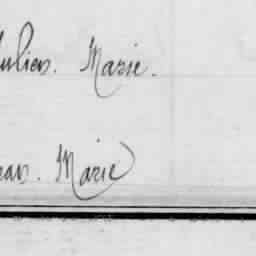 Julien. Marie.
Jean. Marie